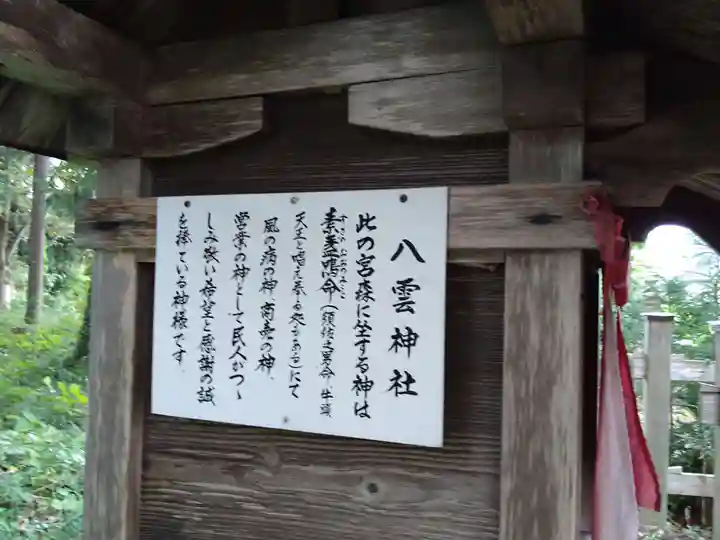 八雲神社
此の宮森に坐する神は
素盞嗚命(須佐之男命 牛頭
すさのおおのみこと
天王と唱え奉る処もある)にて
風の病の神 商売の神、
営業の神として民人がつゝ
しみ敬い希望と感謝の誠
を捧ている神様です。